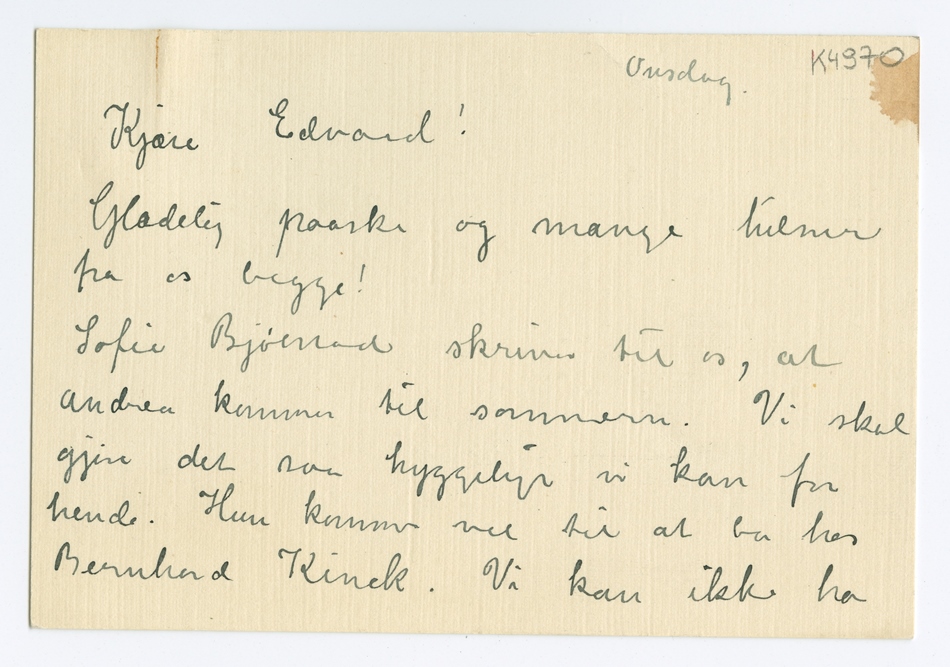 Onsdag.
K4970
Kjære Edvard!
Glædelig paaske og mange hilsner
fra os begge!
Sofie Bjølstad skriver til os, at
Andrea kommer til sommern. Vi skal
gjøre det saa hyggeligt vi kan for
hende. Hun kommer vel til at bo hos
Bernhard Kinck. Vi kan ikke ha